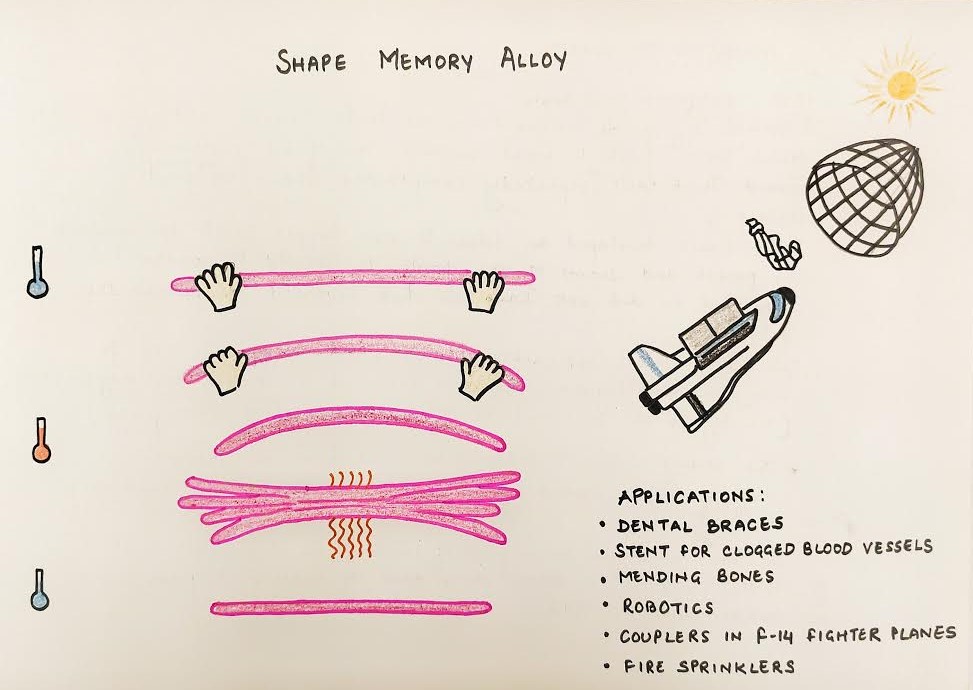 SHAPE MEMORY ALLOY
APPLICATIONS:
• DENTAL BRACES
• STENT FOR CLOGGED BLOOD VESSELS
• MENDING BONES
• ROBOTICS
• COUPLERS IN F-14 FIGHTER PLANES
• FIRE SPRINKLERS